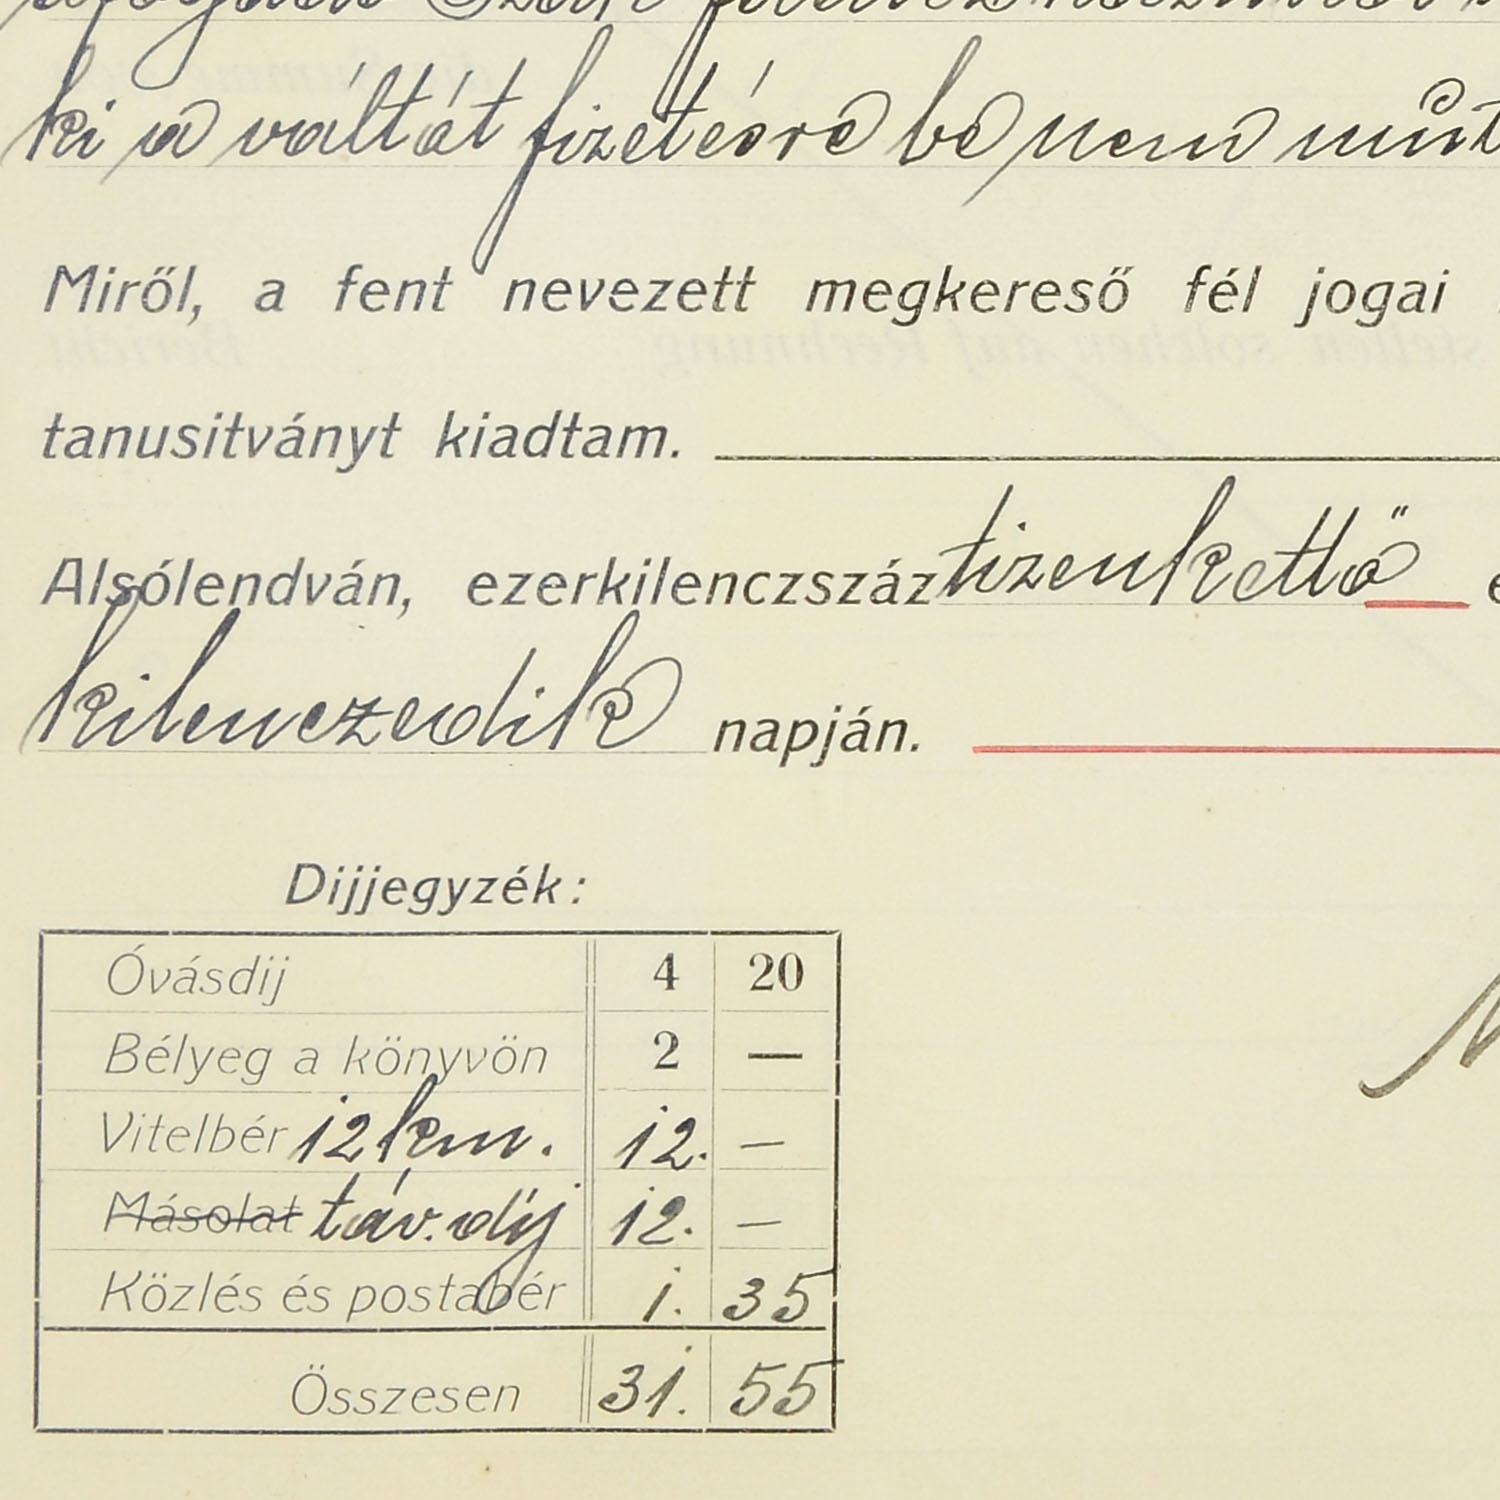 ki a váltát fizetésre be nem
Miről, a fent nevezett megkereső fél jogai
tanusitványt kiadtam.
Alsólendván, ezerkilenczszáz tizenkettő
kilenczedik napján.
Dijjegyzék:
Óvásdij 4 20
Bélyeg a könyvön 2 —
Vitelbér 12 km. 12. —
Másolat táv. díj 12. —
Közlés és postabér 1. 35
Összesen 31. 55